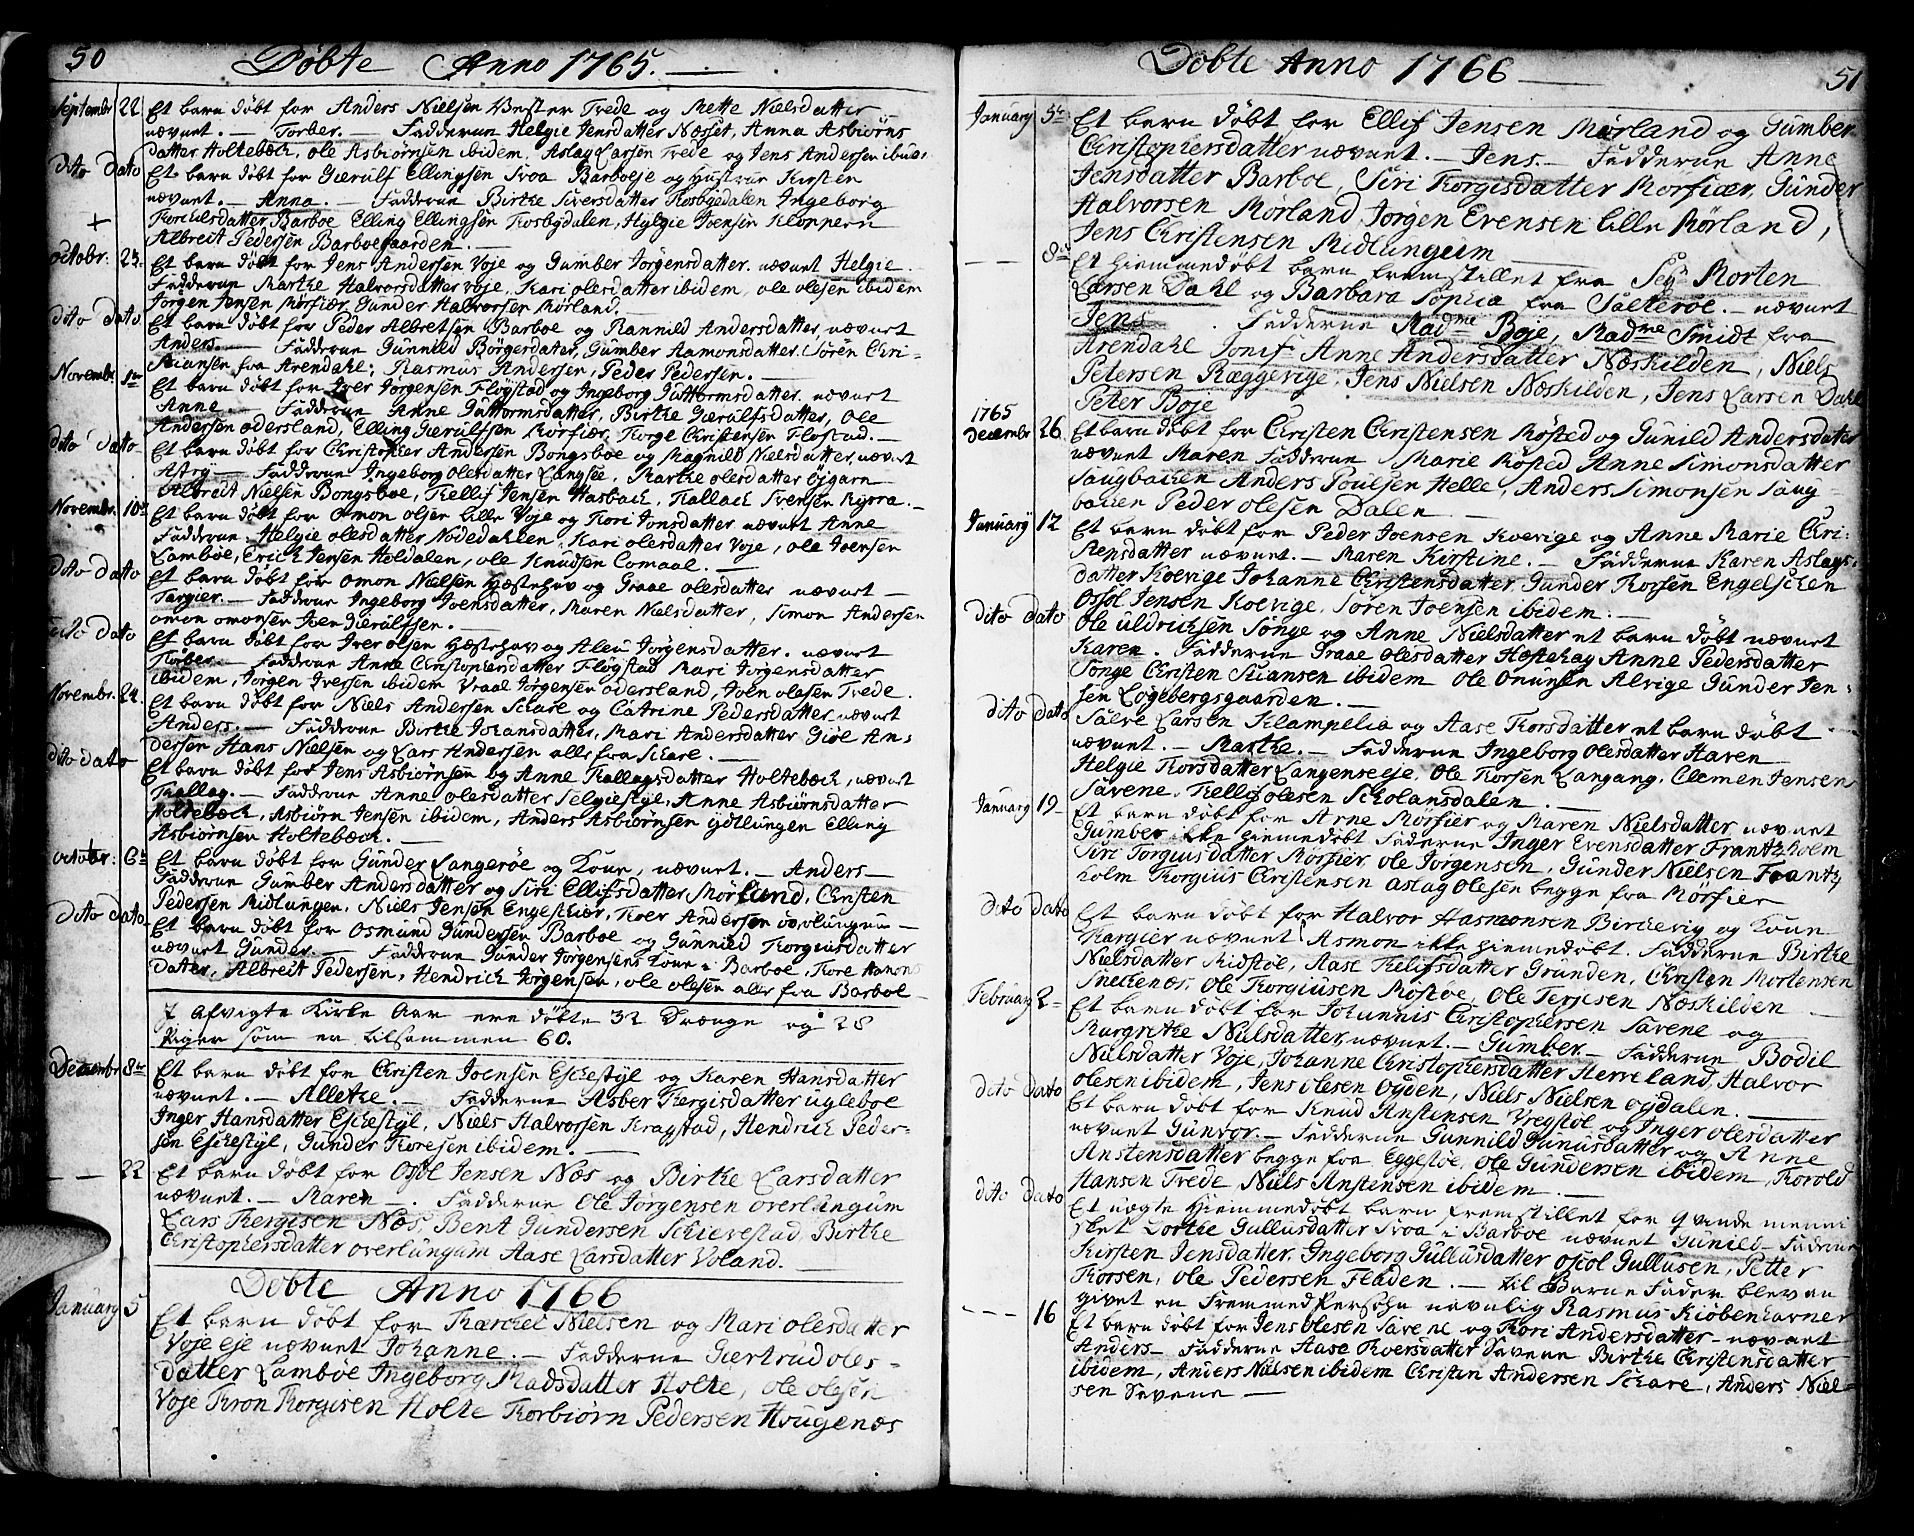 50
Döbte Anno 1765.
Septembr 22 Et barn döbt for Anders Nielsen Vester Trede og Mette Nielsdatter
nævnet. — Torber. — Fadderne Helgie Jensdatter Næsset, Anna Asbiörns
datter Holtebæck, Ole Asbiörnsen ibidem, Aslag Larsen Trede og Jens Andersen ibid:
dito dato Et barn döbt for Gierulf Ellingsen Svoa Barboeje og Hustrue Kirsten
nævnet. — Anna. — Fadderne Birthe Siversdatter Kosbygedalen Ingeborg
+ Torkelsdatter Barboe Elling Ellingsen Kosbygdalen, Hylgie Joensen Kloppern
Albreit Pedersen Barboegaarden. —
octobr. 23. Et barn döbt for Jens Andersen Voje og Gumber Jörgensdatter. nævnet Helgie.
Fadderne Marthe Halvorsdatter Voje, Kari olesdatter ibidem, ole olesen ibidem
Jörgen Jensen Mörfiær, Gunder Halvorsen Mörland. —
dito dato Et barn döbt for Peder Albretsen Barboe og Rannild Andersdatter, nævnet
Anders. — Fadderne Gunnild Börgerdater, Gumber Aamonsdatter. Sören Chri-
stiansen fra Arendahl, Rasmus Andersen, Peder Pedersen. —
Novembr 1te Et barn döbt for Iver Jörgensen Flöystad og Ingeborg Guttormsdatter. nævnet
Anne. — Fadderne Anne Guttormsdatter, Birthe Gierulfsdatter, Ole
Andersen odersland, Elling Gierulfsen Mörfiær, Torge Christensen Flostad. —
dito dato Et barn döbt for Christopher Andersen Bongsboe og Magnild Nielsdatter, nævnet
Astrj — Fadderne Ingeborg Olesdatter Langsee, Marthe olesdatter Öjgarn
Albreit Nielsen Bongsboe, Kellif Jensen Hasback, Tallack Svensen Kyrra. —
Novembr. 10de Et barn döbt for Omon olsen Lille Voje og Tori Jonsdatter nævnet Anne
Fadderne. Helgie olesdatter Nodedahlen, Kari olesdatter Voje, Ole Joensen
Lamböe, Erich Jensen Holdalen, ole Knudsen Comaal. —
dito dato Et barn döbt for Omon Nielsen Hæstehav og Graae olesdatter nævnet —
Targier. — Fadderne Ingeborg Joensdatter, Maren Nielsdatter, Simon Andersen
omon omonsen Joen Gierulfsen. —
dito dato Et barn döbt for Iver olsen Hæstehav og Aleu Jörgensdatter. nævnet
Torber. — Fadderne Anne Christophersdatter Flögstad Mari Jorgensdatter
ibidem, Jörgen Iversen ibidem Vraal Jörgensen odersland, Joen olesen Trede.
Novembr. 24. Et barn döbt for Niels Andersen Schare og Catrine Pedersdatter, nævnet
Anders. — Fadderne Birthe Johansdatter, Mari Andersdatter Giöe An-
dersen Hans Nielsen og Lars Andersen alle fra Schare. —
dito dato Et barn döbt for Jens Asbiörnsen og Anne Tallagsdatter Holtebæck, nævnet
Tallag. — Fadderne Anne olesdatter Selgiestyl, Anne Asbiörnsdatter
Holtebæck, Asbiörn Jensen ibidem, Anders Asbiörnsen Ydtlungen Elling
Asbiörnsen Holtebæck. —
octobr: 6te Et barn döbt for Gunder Langeröe og Kone, nævnet. — Anders —
Fadderne Gumber Andersdatter og Siri Ellifsdatter Mörland, Christen
Pedersen Midlungen, Niels Jensen Engeskiær, Toer Andersen overlungun —
dito dato Et barn döbt for Osmund Gundersen Barboe og Gunnild Torgiusdatter
nævnet Gunder. — Fadderne Gunder Jörgensens Kone i Barboe, Tore Aamons
dater, Albreit Pedersen, Hendrick Jörgensen, ole olesen alle fra Barboe —
I afvigte Kirke Aar ere döbte 32 Drænge og 28
Piger som er tilsammen 60.
Decembr 8de Et barn döbt for Christen Joensen Eschestyl og Karen Hansdatter
nævnet. — Allethe. — Fadderne Asber Tergisdatter ugleboe
Inger Hansdatter Eschestyl, Niels Halvorsen Kragstad, Hendrich Peder-
sen Eschestyl, Gunder Toresen ibidem. —
— — 22 Et barn döbt for Osöl Jensen Næs og Birthe Larsdatter
nævnet. — Maren —. Fadderne Ole Jörgensen overlungum
Lars Tergisen Næs, Bent Gundersen Schievestad, Birthe
Christophersdatter overlungum Aase Larsdatter Voland. —
Döbte Anno 1766
January 5 Et barn döbt for Tarchel Nielsen og Mari olesdatter
Voje eje nævnet Johanne. — Fadderne Giertrud oles-
datter Lamböe Ingeborg Madsdatter Holte, ole olesen
Voje Tron Torgisen Holte Torbiörn Pedersen Hougenæs
51
Döbte Anno 1766
January 5te Et barn döbt for Ellif Jensen Mörland og Gumber
Christophersdatter nævnet. — Jens. — Fadderne Anne
Jensdatter Barboe, Siri Torgisdatter Mörfiær, Gunder
Halvorsen Mörland, Jörgen Evensen Lille Mörland,
Jens Christensen Midlungum
— — 8de Et hiemmedöbt barn fremstillet fra Segr Morten
Larsen Dahl og Barbara Sophia fra Salteröe. — nævnet
Jens. Fadderne Madme Boje, Madme Smidt fra
Arendahl Jonif Anne Andersdatter Næskilden, Niels
Petersen Ræggevige, Jens Nielsen Næskilden, Jens Larsen Dahl
Peter Boje
1765
Decembr 26 Et barn döbt for Christen Christensen Röfted og Gunild Andersdater
nævnet Maren Fadderne Marie Röfted Anne Simonsdatter
Saugbachen Anders Poulsen Helle, Anders Simonsen Saug-
bachen Peder olesen Dalen —
January 12 Et barn döbt for Peder Joensen Koevige og Anne Marie Chri-
stensdatter nævnet. — Maren Kirstine. — Fadderne Karen Aslags-
datter Koevige Johanne Christensdatter, Gunder Torsen Engelschen
Ossöl Jensen Koevige, Sören Joensen ibidem. —
dito dato Ole Uldrichsen Songe og Anne Nielsdatter et barn döbt nævnet
Karen. Fadderne Graae olesdatter Hæstehag Anne Pedersdatter
Songe Christen Stiansen ibidem Ole Onunsen Alvige Gunder Jen-
sen Lögebergsgaarden. —
dito dato Salve Larsen Klampelia og Aase Torsdatter et barn döbt
nævnet. — Marthe. — Fadderne Ingeborg olesdatter Haven
Helgie Torsdatter Langenseeje, Ole Torsen Langang, Clemen Jensen
Savene, Kellif olesen Scholansdalen. —
January 19 Et barn döbt for Arne Mörfier og Maren Nielsdatter nævnet
Gumber ikke hiemedöbt Fadderne Inger Evensdatter Frantzholm
Siri Torgiusdatter Mörfier, Ole Jorgensen, Gunder Nielsen Frantz
holm Torgius Christensen Aslag Olesen begge fra Mörfier
dito dato Et barn döbt for Halvor Aasmonsen Birchevig og Kone
Targier nævnet Asmon ikke hiemedöbt. Fadderne Birthe
Nielsdatter Ridstöl, Aase Kelifsdatter Grunden, Christen Mortensen
Snekenæs, Ole Torgiusen Röstöe, Ole Terjesen Næskilden
February 2 Et barn döbt for Johannis Christophersen Savene og
Margrethe Nielsdatter, nævnet. — Gumber. — Fadderne Bodil
Nielsdatter Voje, Johanne Christophersdatter Herreland, Halvor
olesen ibidem, Jens olesen Ogden, Niels Nielsen ogdalen. —
dito dato Et barn döbt for Knud Anstensen Vregstöl og Inger olesdatter
nævnet Guntor. — Fadderne Gunnild Gunusdatter og Anne
Anstensdatter begge fra Eggestöe, Ole Gundersen ibidem, Torold
Hansen Trede, Niels Anstensen ibidem. —
dito dato Et uægte Hiemmedöbt barn fremstillet for Qvindemenni
sket Dorthe Gullusdatter Svoa i Barboe nævnet Gunild — Fadderne
Kirsten Jensdatter, Ingeborg Gullusdatter ossöl Gullusen, Petter
Torsen, ole Pedersen Fladen. — til Barne Fader blev an
givet en Fremmed Persohn navnlig Rasmus Kiöbenhavner
— — 16 Et barn döbt for Jens olesen Savene og Tori Andersdatter — nævnet
Anders — Fadderne Aase Toersdatter Savene Birthe Christensdatter
ibidem, Anders Nielsen ibidem Christen Andersen Schare, Anders Niel-
sen Savene —